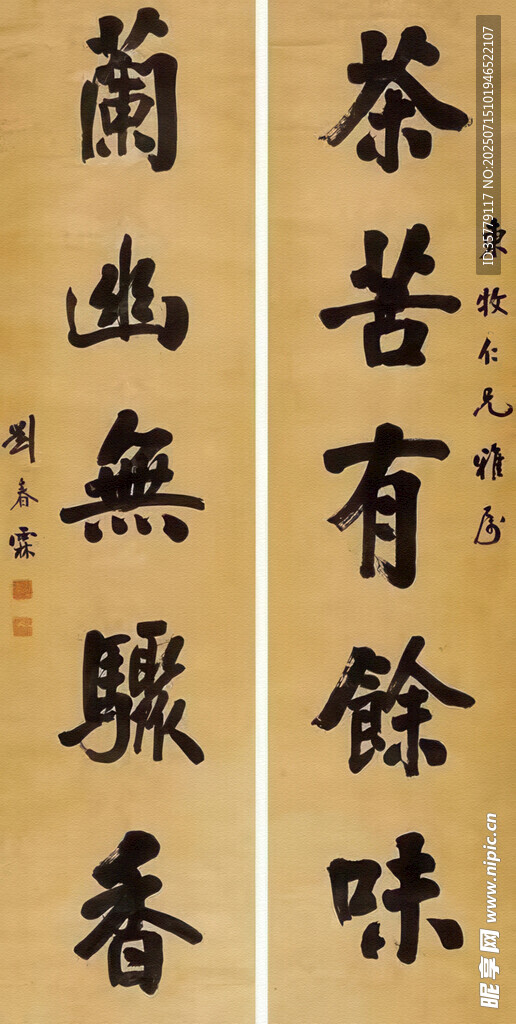 東牧仁兄雅属
茶苦有餘味
蘭幽無驟香
劉春霖
ID:35779117 NO:20250715101946522107
昵享网 www.nipic.cn